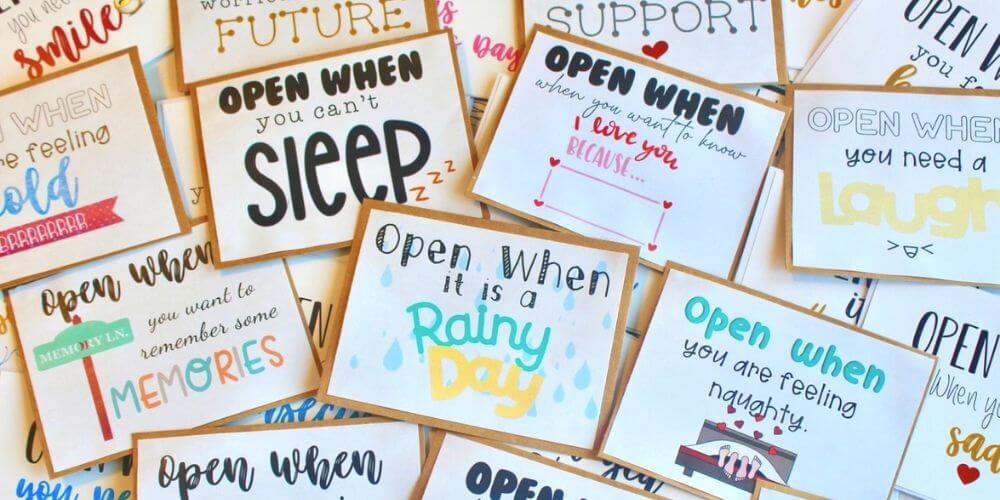 smile
worried
FUTURE
SUPPORT
OPEN W
you fee
OPEN WHEN
you can't
SLEEP
zzz
OPEN WHEN
when you want to know
I love you
BECAUSE...
OPEN WHEN
you need a
Laugh
WHEN
re feeling
old
RRRRRRRR
open when
MEMORY LN.
you want to
remember some
MEMORIES
Open When
it is a
Rainy
Day
Open when
you are feeling
naughty.
OPEN
When you
sad
open when
OPEN WHEN